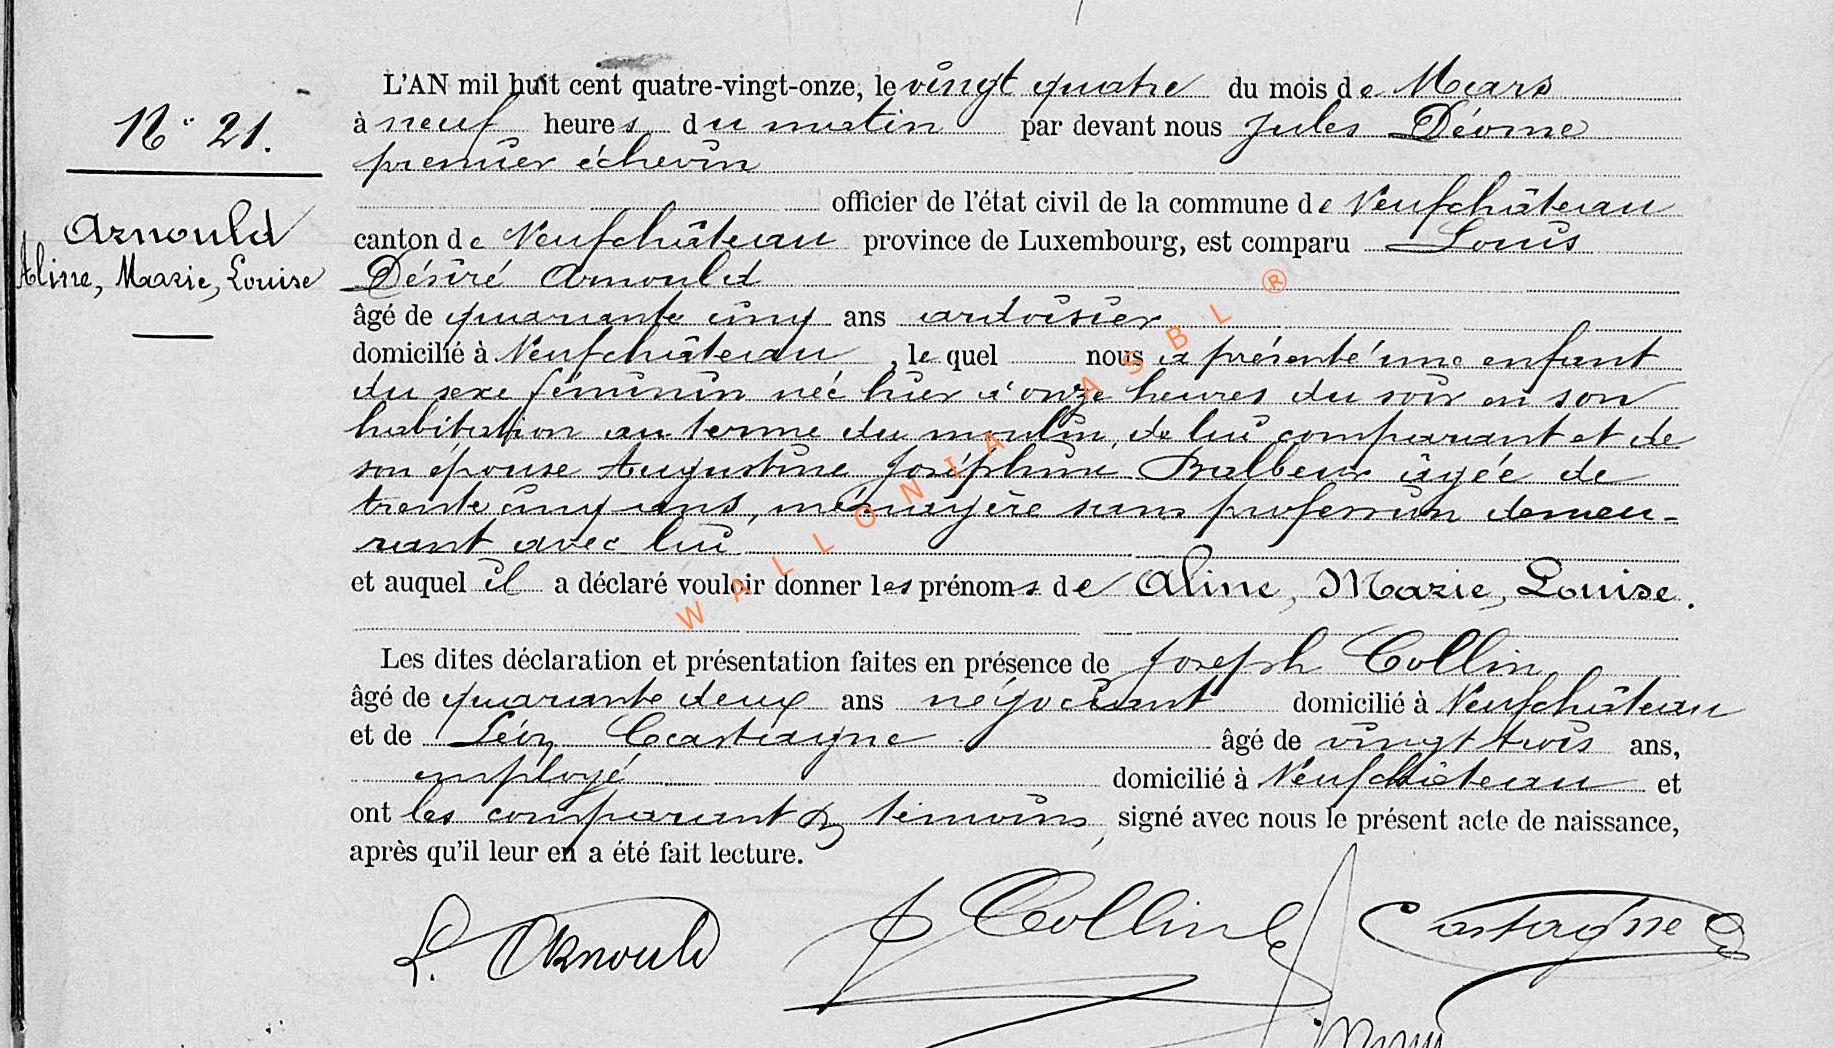 L'AN mil huit cent quatre-vingt-onze, le vingt quatre du mois de Mars
N° 21.
à neuf heures du matin par devant nous Jules Déome
premier échevin
officier de l'état civil de la commune de Neufchâteau
Arnould
Aline, Marie, Louise
canton de Neufchâteau province de Luxembourg, est comparu Louis
Désiré Arnould
âgé de quarante cinq ans ardoisier
domicilié à Neufchâteau, le quel nous a présenté une enfant
du sexe féminin née hier à onze heures du soir en son
habitation au terme du moulin, de lui comparant et de
son épouse Augustine Joséphine Balbeur âgée de
trente cinq ans, ménagère sans profession demeu-
rant avec lui
et auquel il a déclaré vouloir donner les prénoms de Aline, Marie, Louise.
Les dites déclaration et présentation faites en présence de Joseph Collin
âgé de quarante deux ans négociant domicilié à Neufchâteau
et de Léon Castaigne âgé de vingt trois ans,
employé domicilié à Neufchâteau et
ont les comparant & témoins, signé avec nous le présent acte de naissance,
après qu'il leur en a été fait lecture.
L. Arnould J Collin Castaigne
WALLONIA ASBL ®